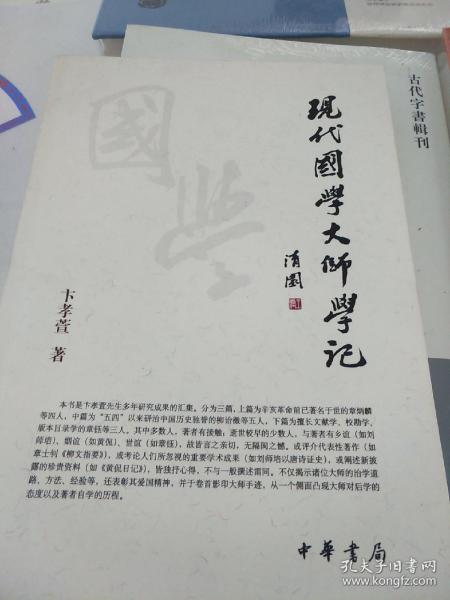 古代字書輯刊
國學
現代國學大師學記
清園
卞孝萱 著
本书是卞孝萱先生多年研究成果的汇集。分为三篇,上篇为辛亥革命前已著名于世的章炳麟
等四人,中篇为“五四”以来研治中国历史驰誉的柳诒徵等五人,下篇为擅长文献学、校勘学、
版本目录学的章钰等三人,其中多数人,著者有接触;逝世较早的少数人,与著者有乡谊(如刘
师培)、姻谊(如黄侃)、世谊(如章钰),故皆言之亲切,无隔阂之憾。或评介代表性著作(如
章士钊《柳文指要》),或考论人们所忽视的重要学术成果(如刘师培以唐诗证史),或阐述新披
露的珍贵资料(如《黄侃日记》),皆独抒心得,不与一般撰述雷同。不仅揭示诸位大师的治学道
路、方法、经验等,还表彰其爱国精神,并于卷首影印大师手迹,从一个侧面凸现大师对后学的
态度以及著者自学的历程。
中華書局
孔夫子旧书网